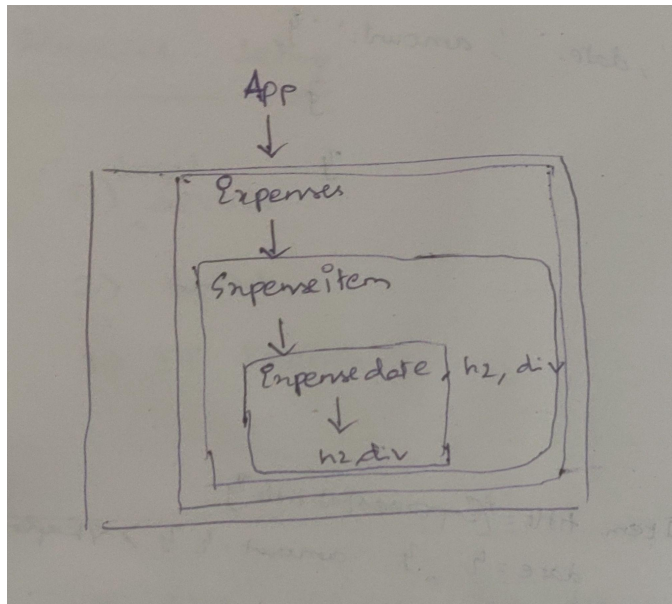 App
Expenses
Expenseitem
Expensedate, h2, div
h2,div